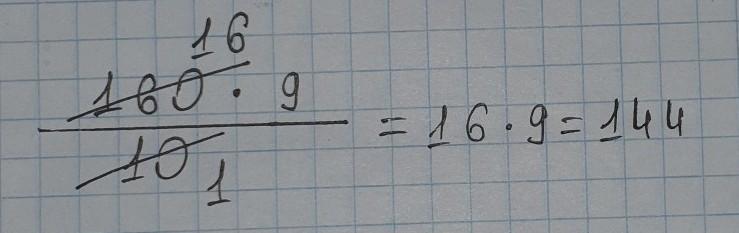 16
160 · 9
10 1
= 16 · 9 = 144